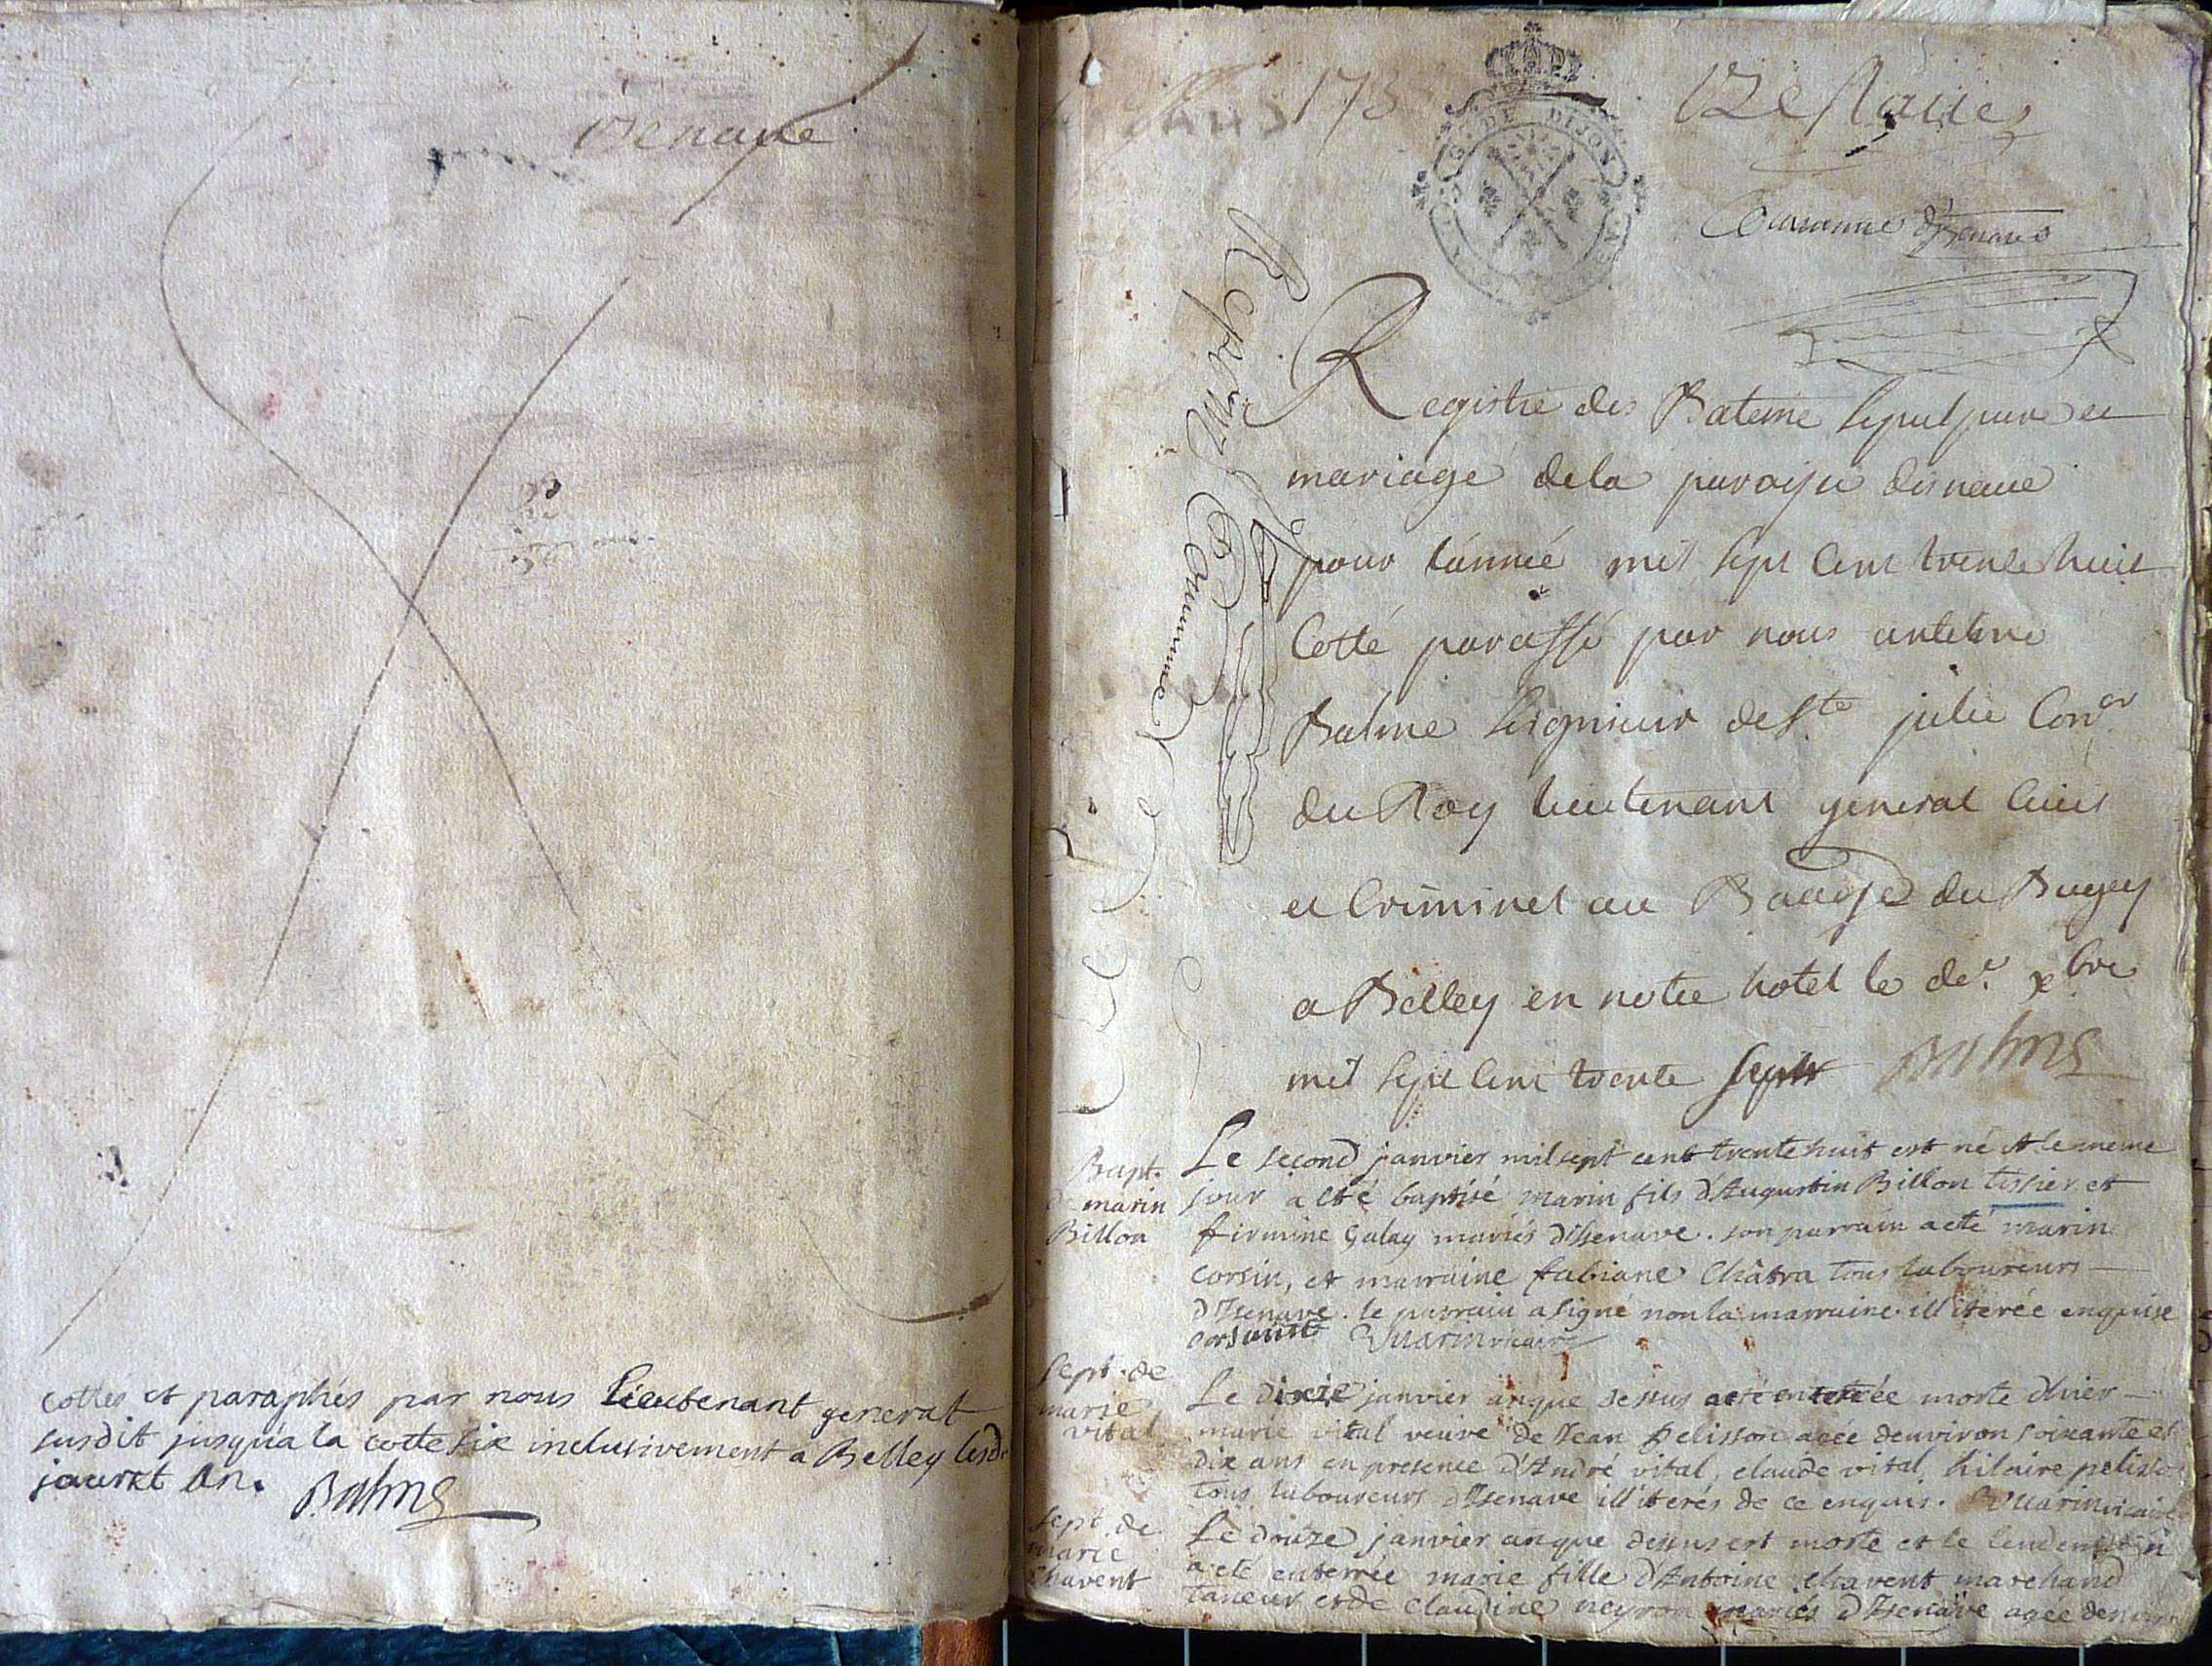 isenave
cottés et paraphés par nous Lieutenant general
susdit jusqu'a la cotte six inclusivement a Belley lesd.
jour et an. Balme
1738
G. DE DIJON
Commune d'Izenave
Registre des Bateme sepulture et
mariage de la paroisse disnaue
pour l'année mil sept cent trente huit
Cotté paraffé par nous antelme
Balme seigneur de Ste julie Coner
du Roy lieutenant general civil
et Criminel au Baage du Bugey
a Belley en notre hotel le de.r xbre
mil sept cent trente sept Balme
Bapt.
de marin
Billon
Le second janvier mil sept cent trente huit est né et le meme
jour a eté baptisé marin fils d'Augustin Billon tissier et
firmine Galay mariés d'Isenave. son parrain a eté marin
corsin, et marraine fabiane Châtra tous laboureurs
d'Isenave. le parrain a signé non la marraine illiterée enquise
corsaint Vuarin vicaire
sept. de
marie
vital
Le dixie janvier an que dessus a eté enterrée morte d'hier
marie vital veuve de Jean Pelisson agée d'environ soixante et
dix ans en presence d'André vital, claude vital, hilaire pelisson
tous laboureurs d'Isenave illiterés de ce enquis. Vuarin vicaire
sept. de
marie
Chavent
Le douze janvier an que dessus est morte et le lendemain
a eté enterrée marie fille d'Antoine chavent marchand
taneur et de claudine neyron mariés d'Isenave agée d'environ